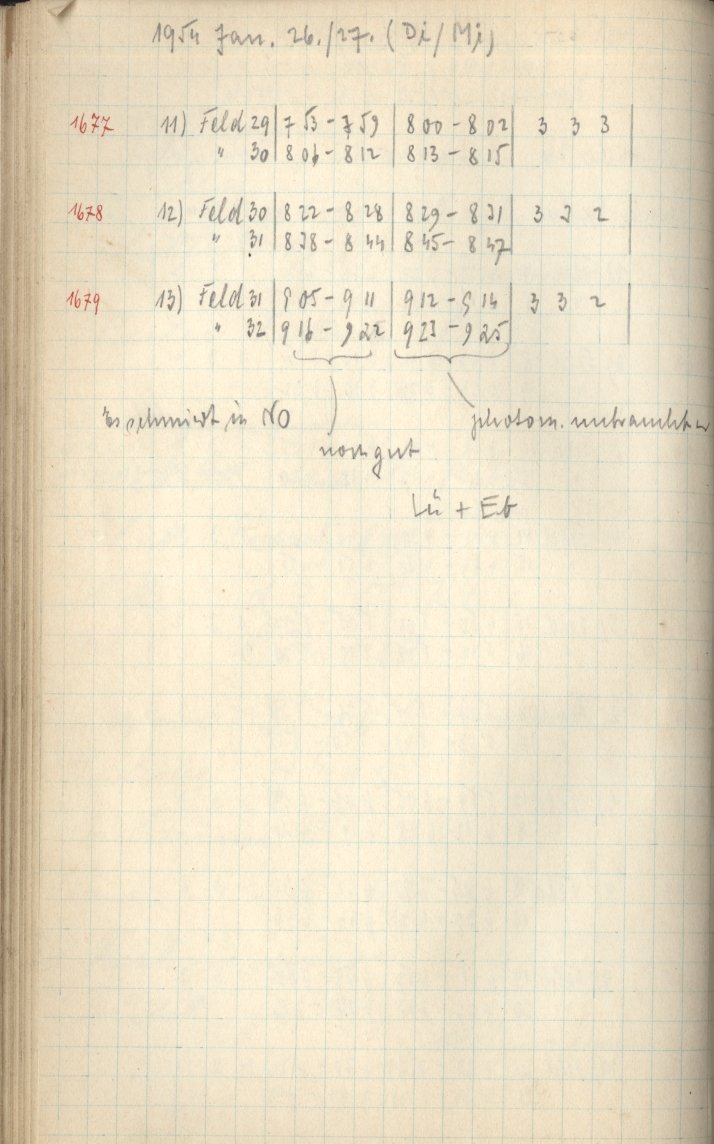 1954 Jan. 26./27. (Di/Mi)
1677 11) Feld 29 | 7 53 - 7 59 | 8 00 - 8 02 | 3 3 3 |
" 30 | 8 06 - 8 12 | 8 13 - 8 15 |
1678 12) Feld 30 | 8 22 - 8 28 | 8 29 - 8 31 | 3 3 2 |
" 31 | 8 38 - 8 44 | 8 45 - 8 47 |
1679 13) Feld 31 | 9 05 - 9 11 | 9 12 - 9 14 | 3 3 2 |
" 32 | 9 16 - 9 22 | 9 23 - 9 25 |
Es schmiert in NO
photom. unbrauchbar
noch gut
Lü + Eb